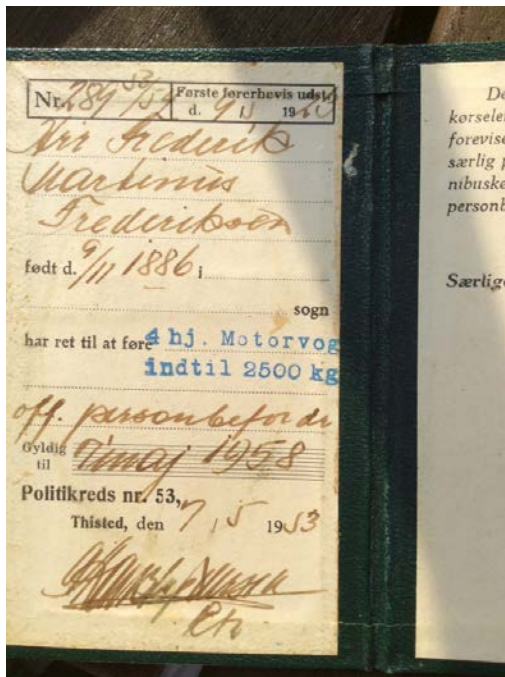 Nr. 289 53/52 Første førerbevis udst.
d. 9 11 19
Hrr Frederik
Martinus
Frederiksen
født d. 9/11 1886 i
sogn
har ret til at føre 4 hj. Motorvog
indtil 2500 kg
off. personbefordr
Gyldig til 7 maj 1958
Politikreds nr. 53,
Thisted, den 7 / 5 1953
De
kørsele
forevise
særlig p
nibuskø
personb
Særlige